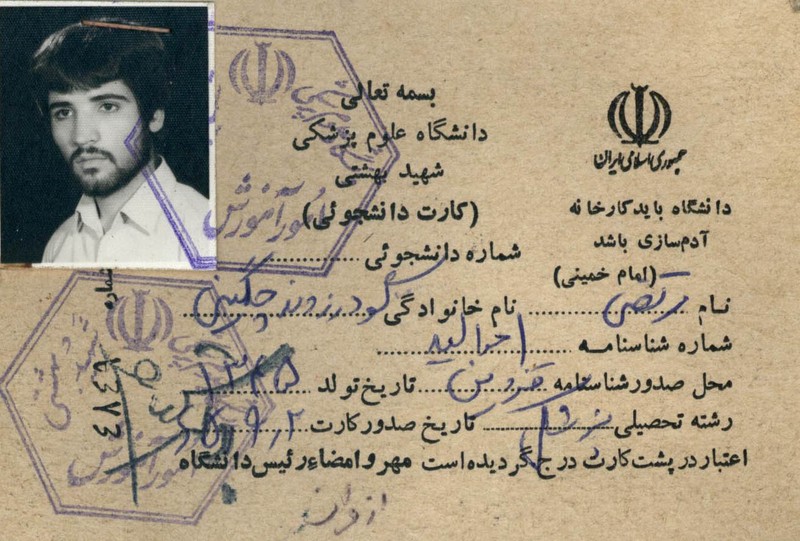 بسمه تعالی
دانشگاه علوم پزشکی
شهید بهشتی
(کارت دانشجوئی)
جمهوری اسلامی ایران
دانشگاه باید کارخانه
آدم‌سازی باشد
(امام خمینی)
شماره دانشجوئی
شماره ۴۸۴۶
نام مرتضی نام خانوادگی گودرزوند چگینی
شماره شناسنامه
محل صدور شناسنامه قزوین تاریخ تولد ۱۳۴۵
رشته تحصیلی پزشکی تاریخ صدور کارت
اعتبار در پشت کارت درج گردیده است مهر و امضاء رئیس دانشگاه
امور آموزش
امور آموزش